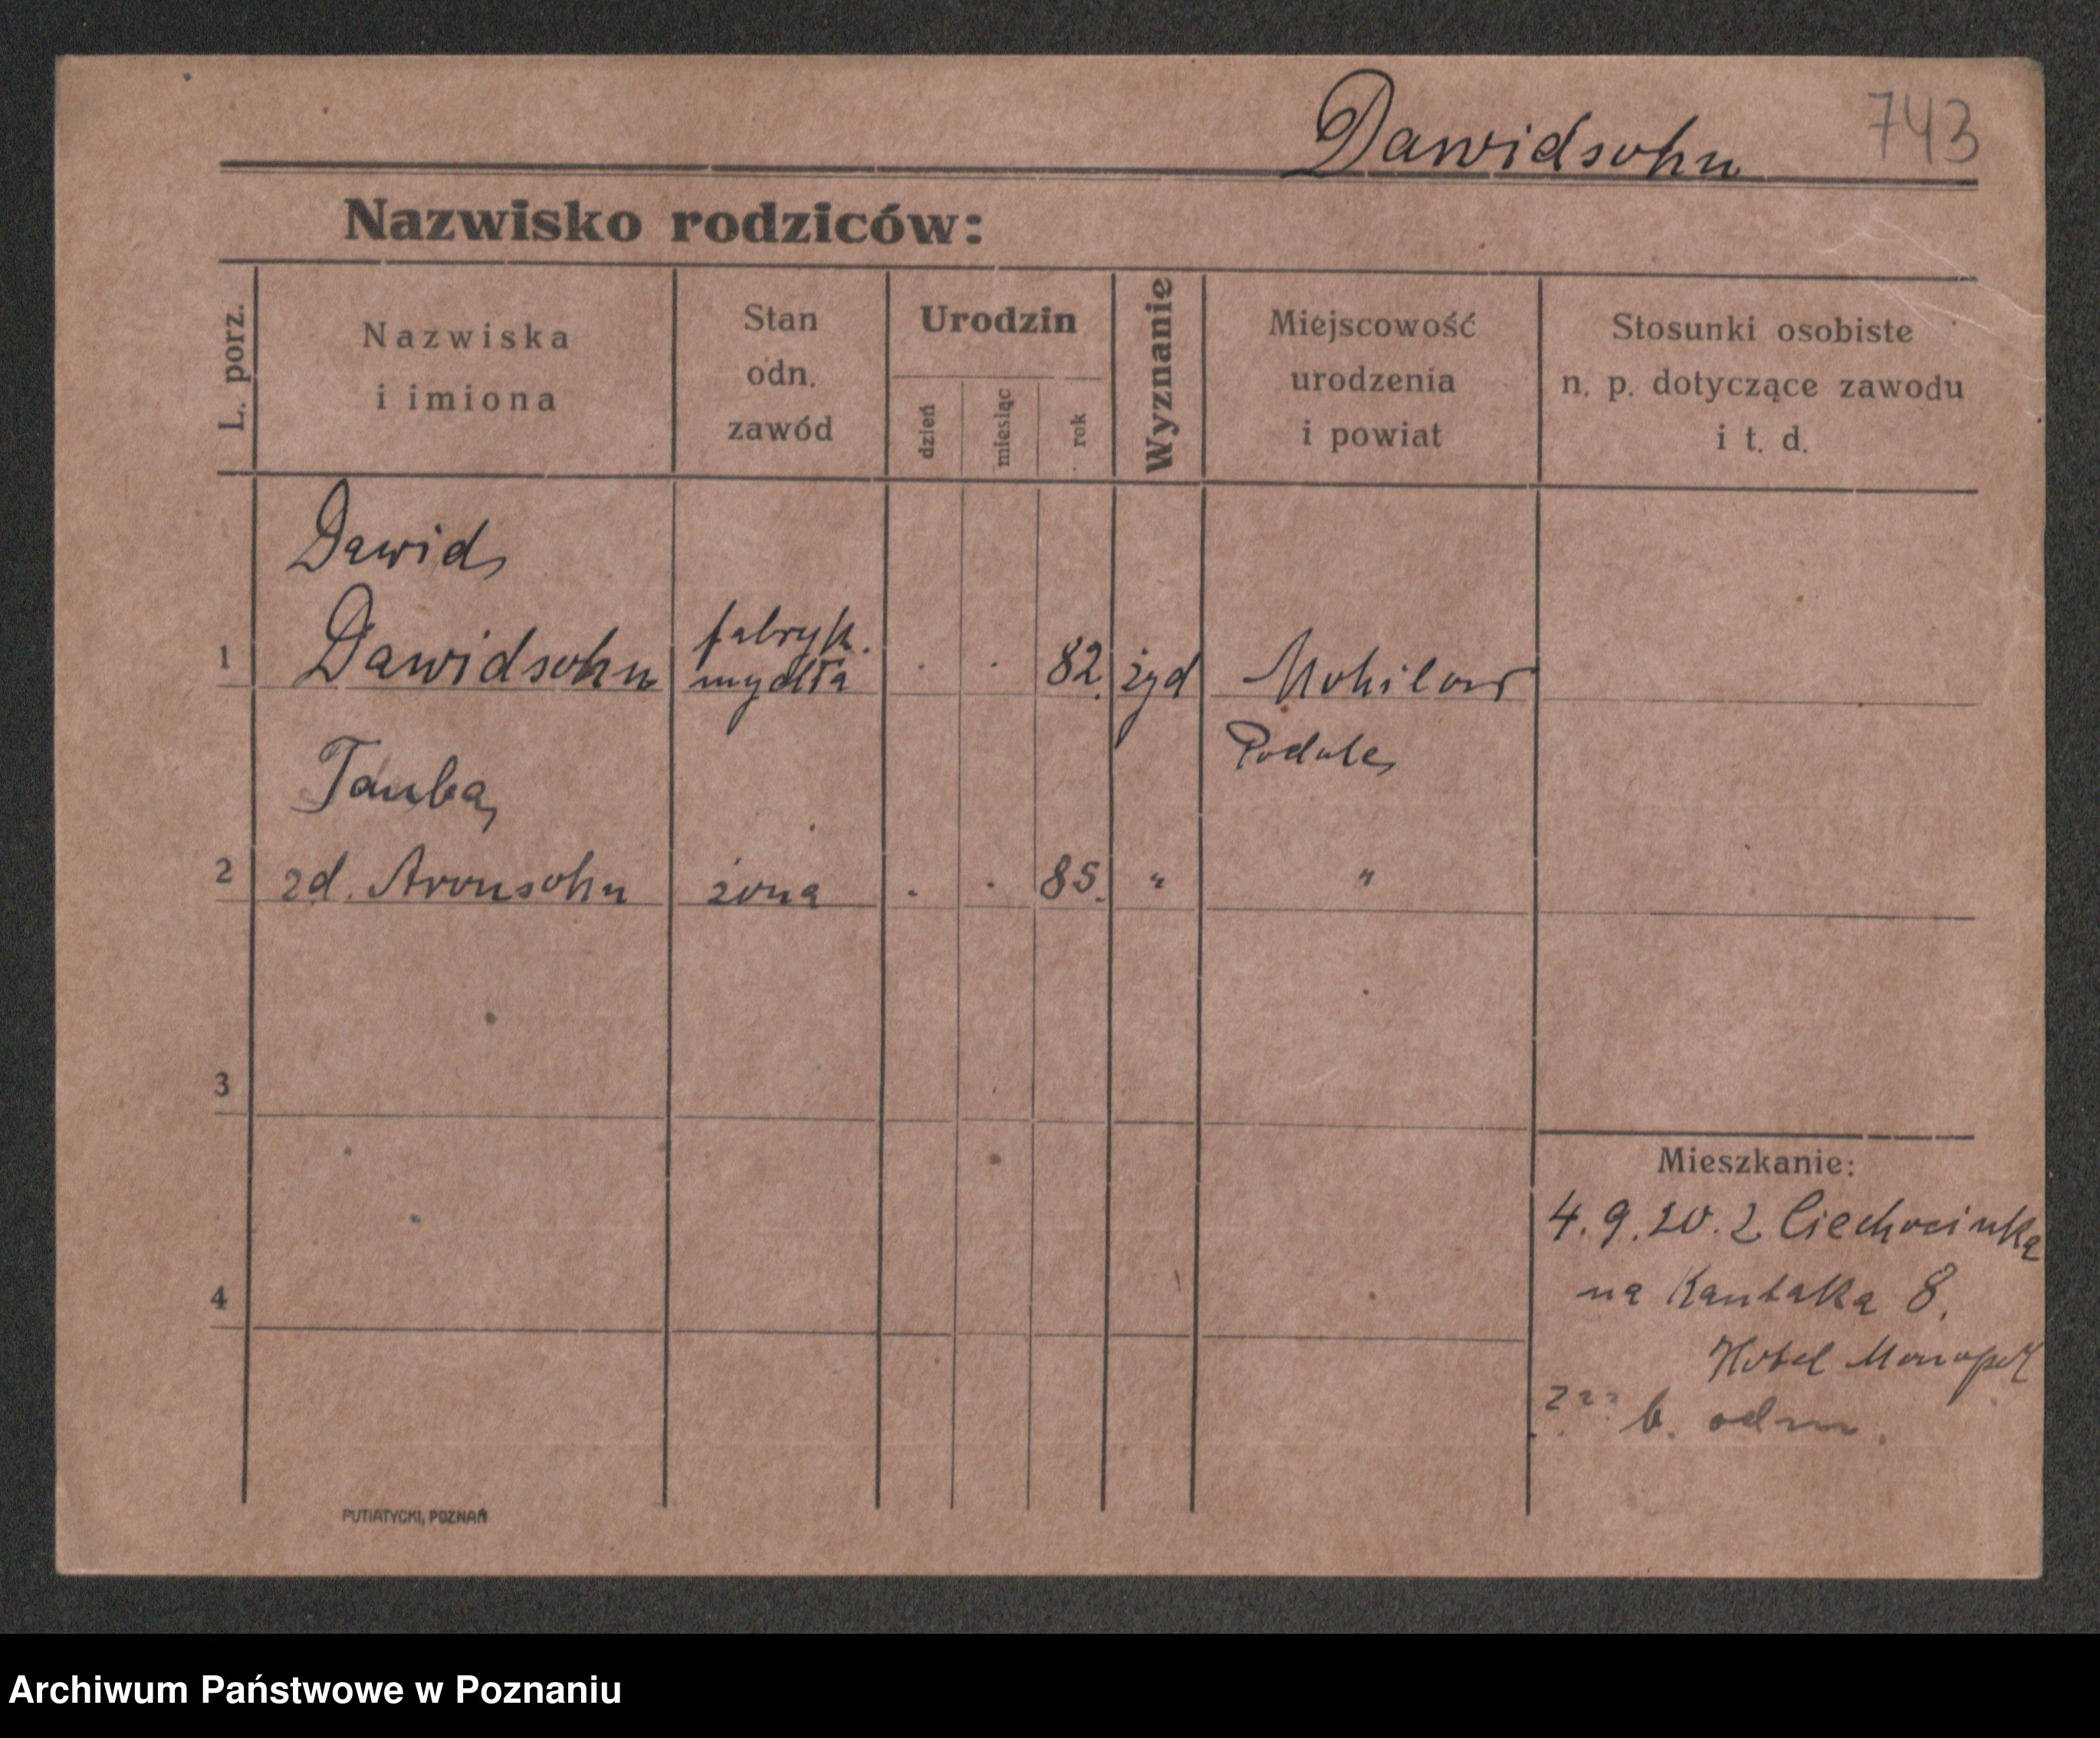 Dawidsohn 743
Nazwisko rodziców:
L. porz.
Nazwiska
i imiona
Stan
odn.
zawód
Urodzin
dzień
miesiąc
rok
Wyznanie
Miejscowość
urodzenia
i powiat
Stosunki osobiste
n. p. dotyczące zawodu
i t. d.
Dawid
1 Dawidsohn
fabryk.
mydła
. . 82. żyd Mohilow
Podole
Tauba
2 zd. Aronsohn żona . . 85. " "
3
4
Mieszkanie:
4.9.20. z Ciechocinka
na Kantaka 8.
Hotel Monopol
b. odm.
PUTIATYCKI, POZNAŃ
Archiwum Państwowe w Poznaniu